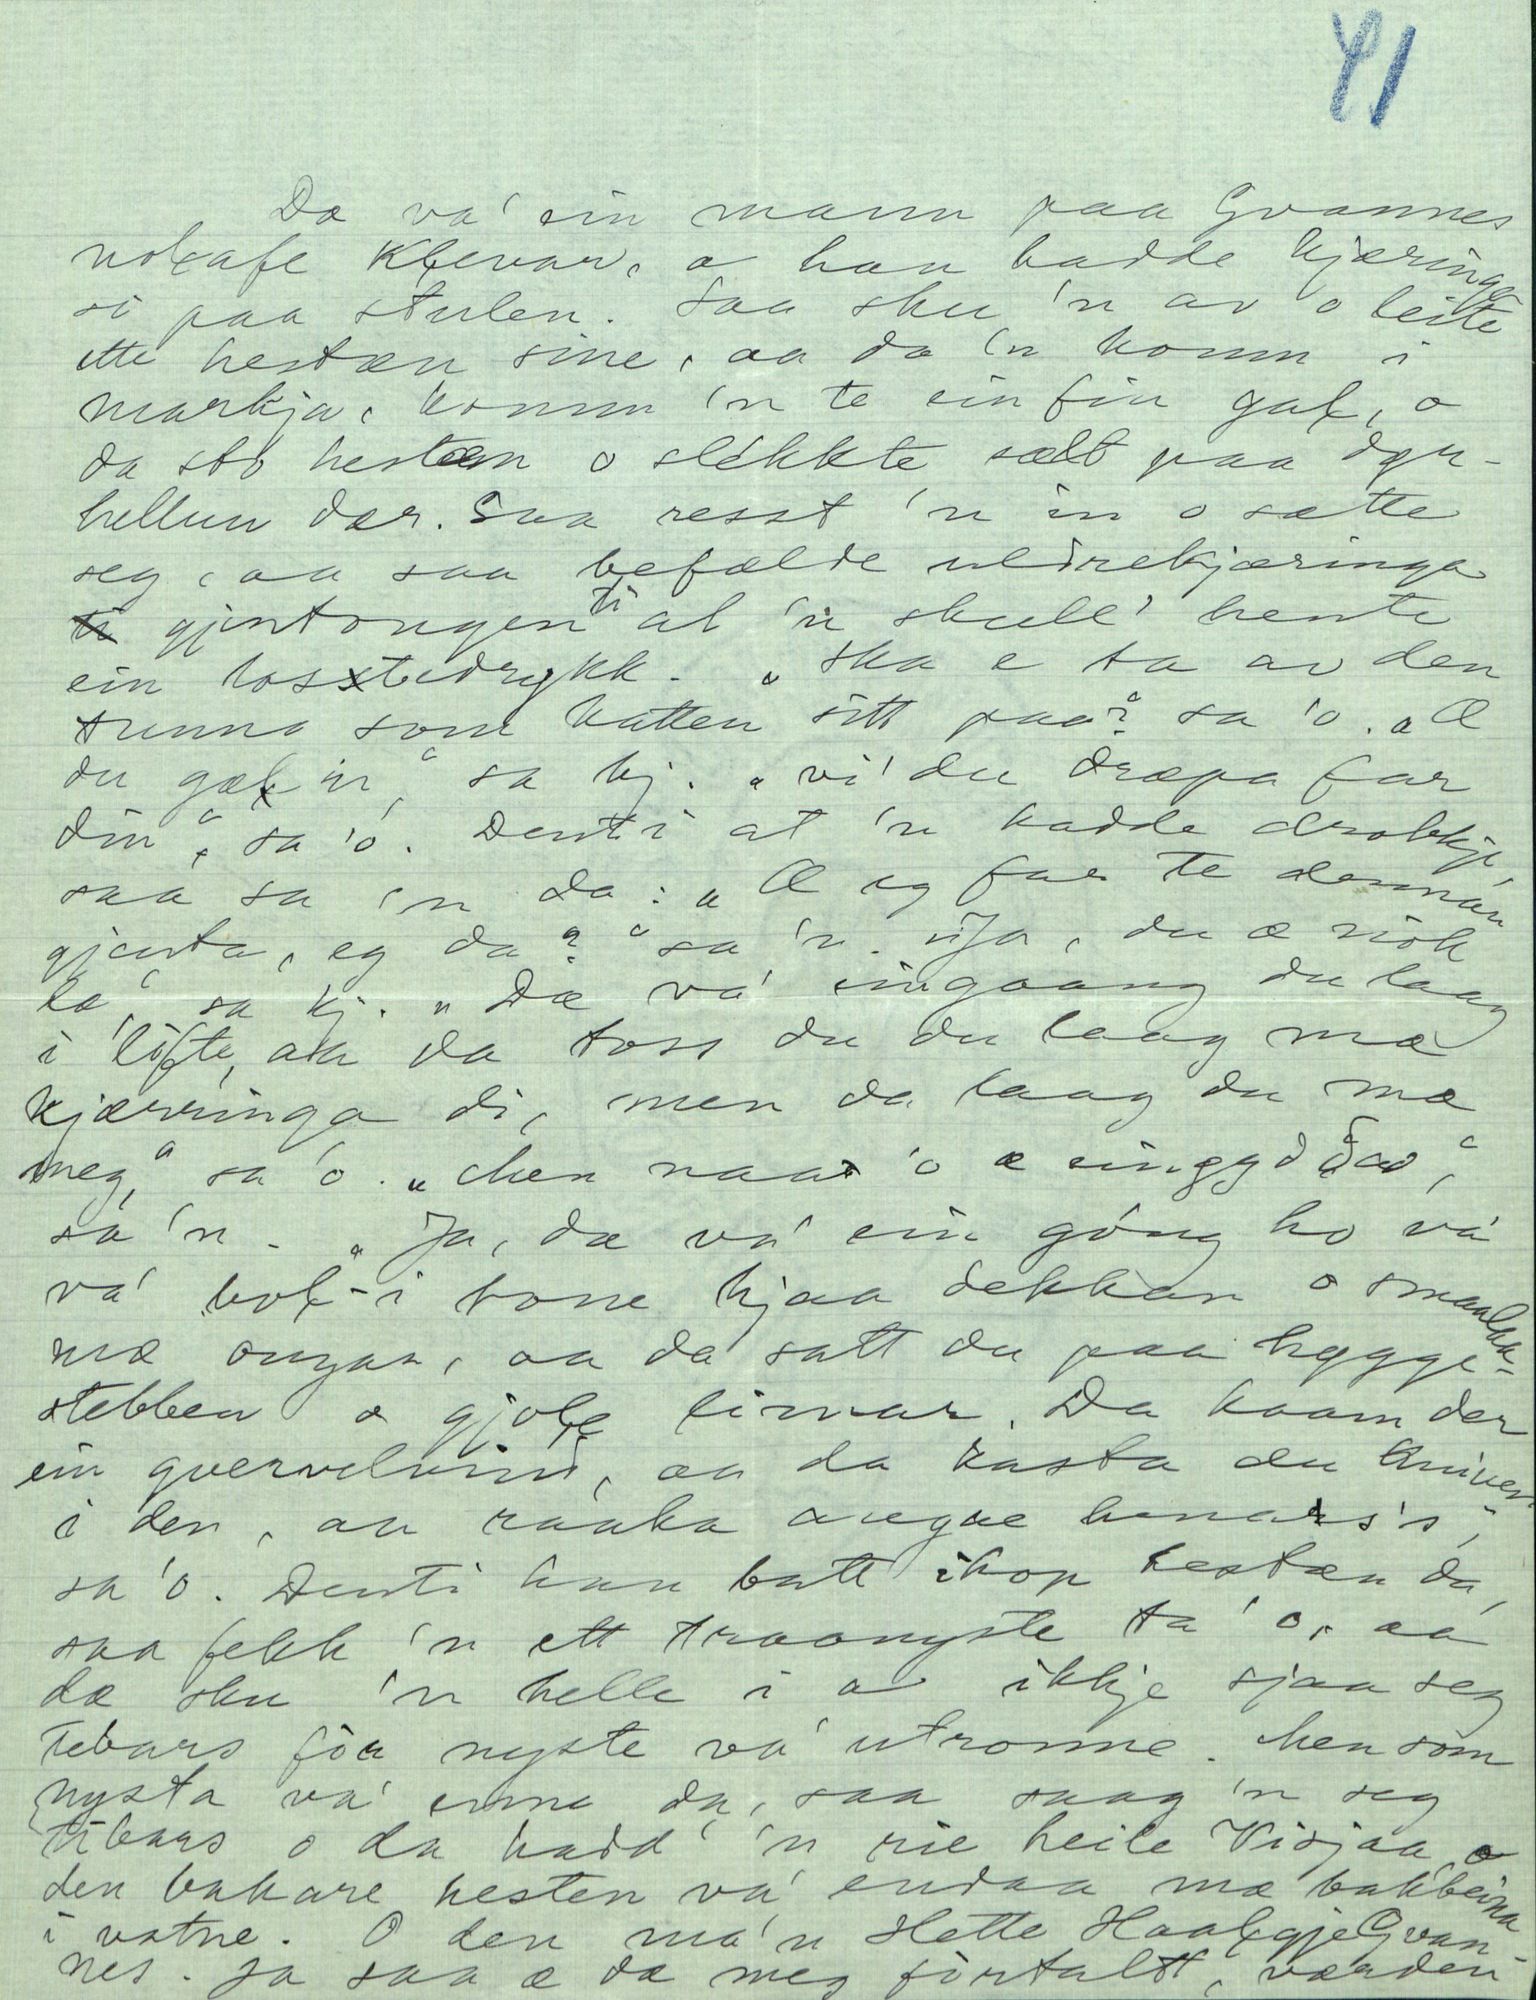 41
Da va' ein mann paa Gvannes
nolafe Klevar, o han hadde kjæringa
si paa stulen. Saa sku 'n av o leite
ette hestæn sine, aa da 'n komm i
markja, komm 'n te ein fin gal, o
da sto hestæn o slékkte sælt paa dør-
hellun dær. Saa resst 'n in o sætte
seg, aa saa befælde uldrekjæringa
gjentongen ti at 'n skull' hente
ein tosstedrykk. „Ska e ta av den
tunna som katten sitt paa?" sa 'o. „Æ
du gæl'n", sa kj. „vi' du dræpa far
din", sa 'o. Denti at 'n hadde drokkje
saa sa 'n da: „Æ eg far te dennan
gjenta, eg da?" sa 'n. „Ja, du æ nok
læ", sa kj. „Dæ va' eingaang du laag
i löfte, aa da toss du du laag mæ
kjærringa di, men da laag du mæ
meg," sa 'o. „Men naar 'o æ eingygd
sa 'n. „Ja, dæ va' ein gong ho va'
va' bol-i tone hjaa dekkan o smaalaa
mæ ongan, aa da satt du paa hogge-
stebben o gjole limar. Da kaam der
ein qvervelvind, aa da kasta du kniven
i den, aa raaka auge hennars",
sa 'o. Denti han batt ihop hestæn da,
saa fekk 'n ett traanyste ta' 'o, aa
dæ sku 'n helle i a ikkje sjaa seg
tebars för nyste va' utronne. Men som
nysta va' enne da, saa saag 'n seg
tibars o da hadd' 'n rie heile Visjaa, o
den bakare hesten va' endaa mæ bakbeina
i vatne. O den ma'n hette Haalgje Gvan-
nes. Ja saa æ dæ meg förtalt, værden